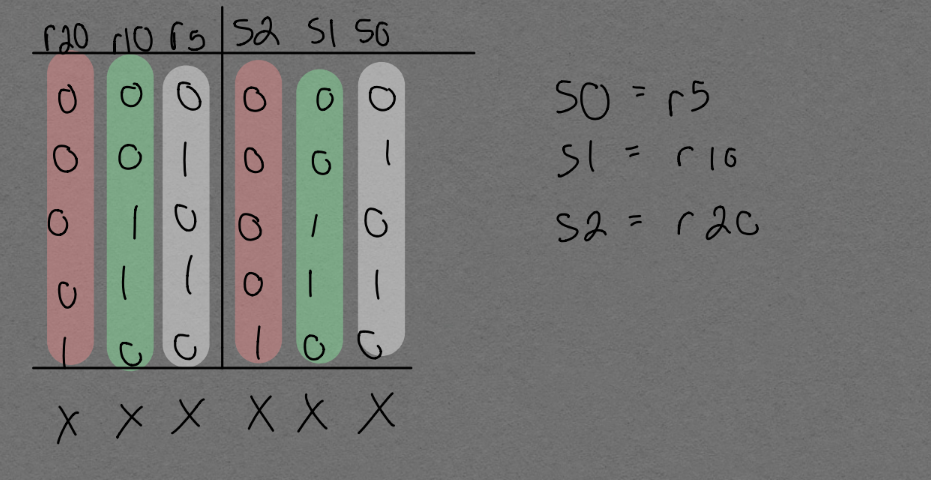 r20 r10 r5 S2 S1 S0
0 0 0 0 0 0
0 0 1 0 0 1
0 1 0 0 1 0
0 1 1 0 1 1
1 0 0 1 0 0
X X X X X X
S0 = r5
S1 = r10
S2 = r20